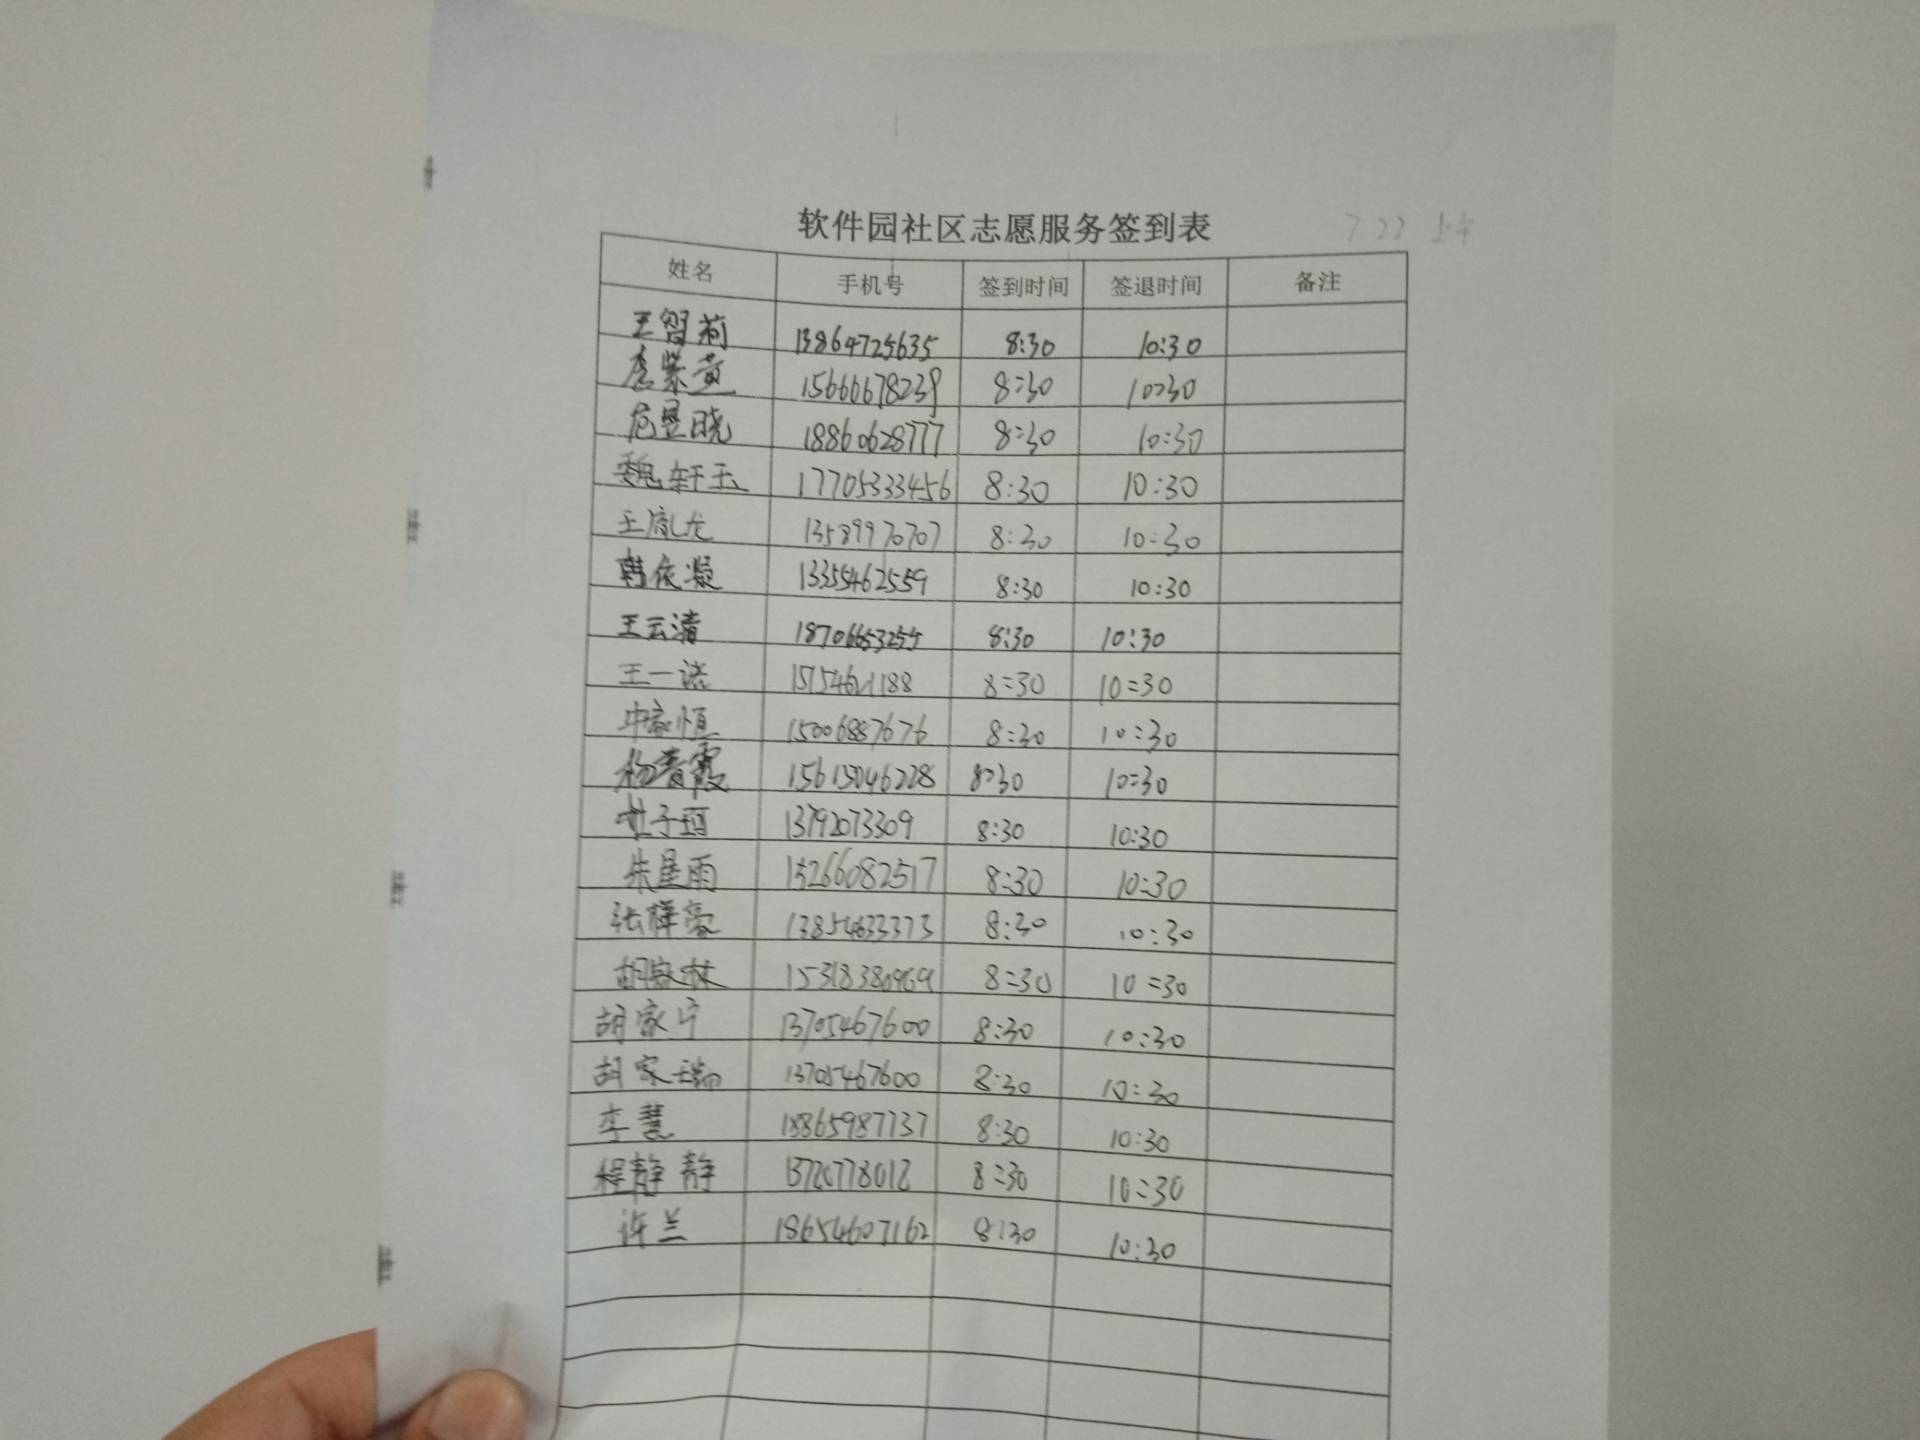 软件园社区志愿服务签到表 7.22 上午
姓名 手机号 签到时间 签退时间 备注
王智莉 13864725635 8:30 10:30
李紫黄 15666678239 8:30 10:30
昱晓 18860628777 8:30 10:30
魏轩玉 17705333456 8:30 10:30
王胤龙 13589970707 8:30 10:30
韩依凝 13355462559 8:30 10:30
王云清 8:30 10:30
王一诺 8:30 10:30
家恒 15006887676 8:30 10:30
杨青霞 15615046228 8:30 10:30
杜子 13792073309 8:30 10:30
朱星雨 13266082517 8:30 10:30
张梓豪 13854633373 8:30 10:30
胡家林 15318380969 8:30 10:30
胡家宁 13705467600 8:30 10:30
胡家瑞 13705467600 8:30 10:30
李慧 18865987737 8:30 10:30
程静静 8:30 10:30
许兰 18654607162 8:30 10:30